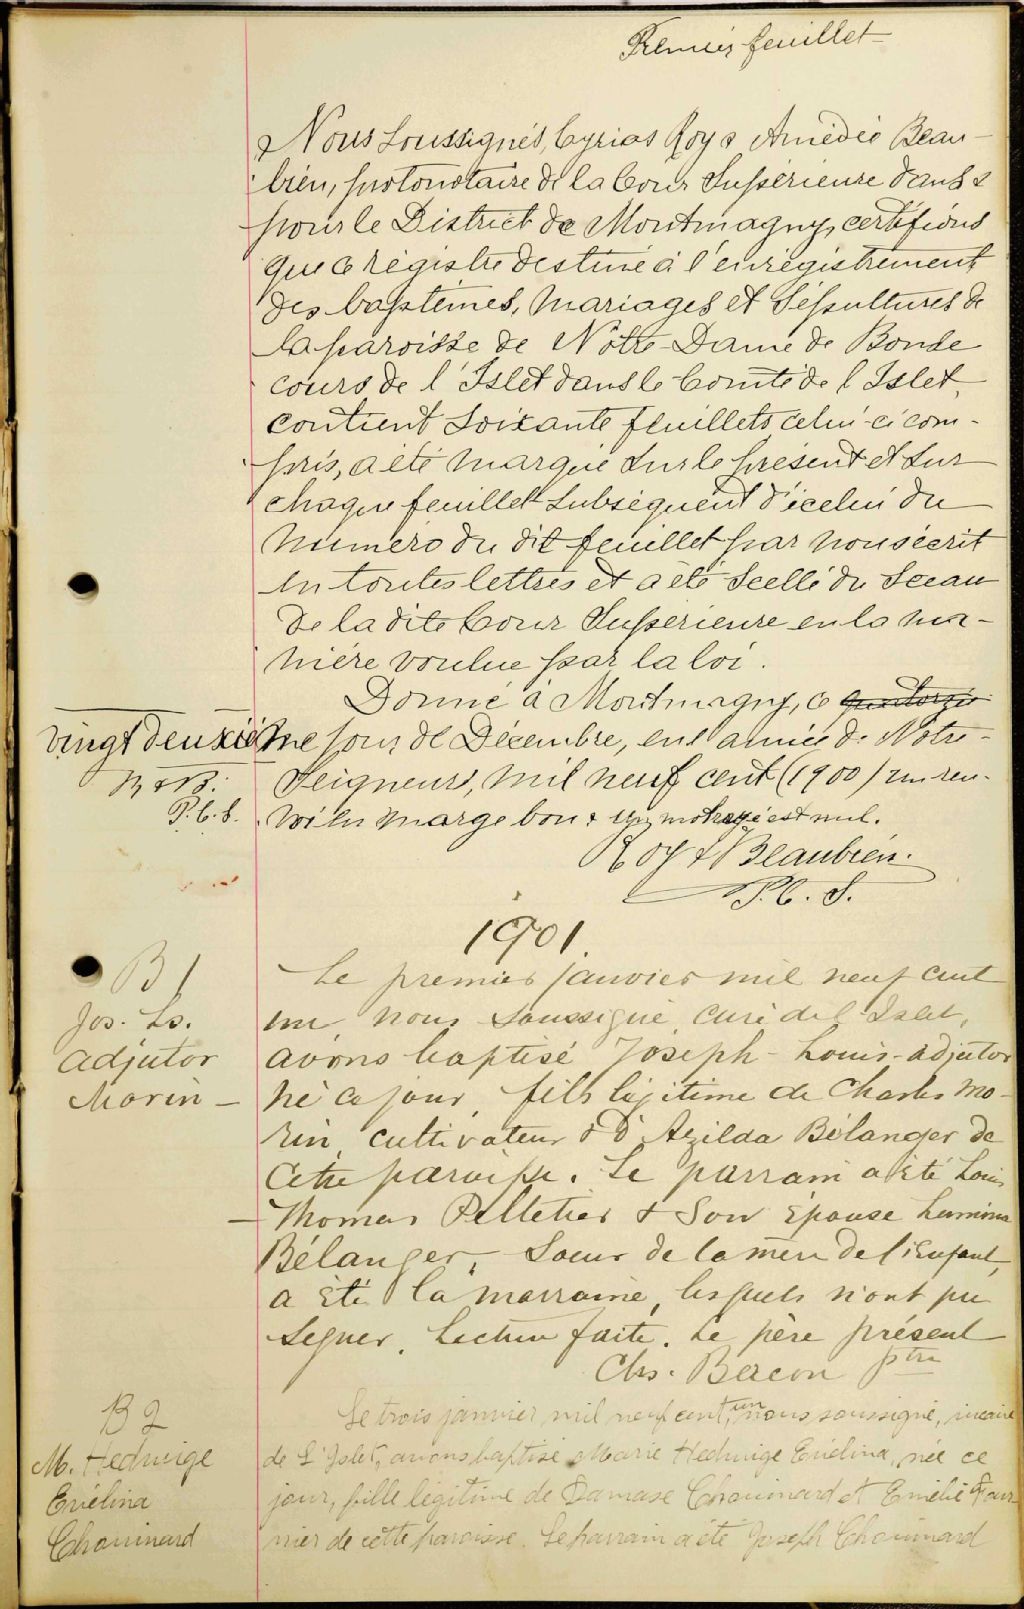 Premier feuillet
Nous Soussignés, Cyrias Roy & Amédée Beau-
bien, protonotaire de la Cour Supérieure dans &
pour le District de Montmagny, certifions
que ce régistre destiné à l'enrégistrement
des baptêmes, mariages et Sépultures de
la paroisse de Notre-Dame de Bonse
cours de l'Islet dans le Comté de l'Islet,
contient soixante feuillets celui-ci com-
pris, a été marqué sur le présent et sur
chaque feuillet subséquent d'icelui du
numéro du dit feuillet par nous écrit
en toutes lettres et a été scellé du Sceau
de la dite Cour Supérieure en la ma-
nière voulue par la loi.
Donné à Montmagny, ce quatorziè
vingt deuxième jour de Décembre, en l'année de Notre-
R & B.
P.C.S.
Seigneur, mil neuf cent (1900) un ren-
voi en marge bon & un mot rayé est nul.
Roy & Beaubien.
P.C.S.
1901
B 1
Jos. Ls.
Adjutor
Morin
Le premier janvier mil neuf cent
un, nous soussigné, curé de l'Islet,
avons baptisé Joseph-Louis-Adjutor
né ce jour, fils légitime de Charles Mo-
rin, cultivateur & d'Azilda Bélanger de
cette paroisse. Le parrain a été Louis
Thomas Pelletier & son épouse
Bélanger, soeur de la mère de l'enfant,
a été la marraine, lesquels n'ont pu
signer. Lecture faite. Le père présent
Chs. Bacon ptre
B 2
M. Hedwige
Emélina
Chouinard
Le trois janvier mil neuf cent, un nous soussigné, vicaire
de L'Islet, avons baptisé Marie Hedwige Emélina, née ce
jour, fille légitime de Damase Chouinard et Emélie Four
nier de cette paroisse. Le parrain a été Joseph Chouinard